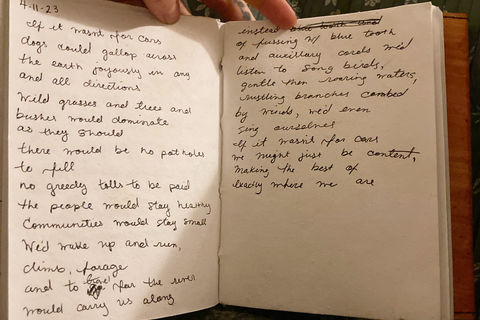 4-11-23
If it wasn't for cars
dogs could gallop across
the earth joyously in any
and all directions
Wild grasses and trees and
bushes would dominate
as they should
there would be no potholes
to fill
no greedy tolls to be paid
the people would stay healthy
Communities would stay small
We'd wake up and run,
climb, forage
and to for the river
would carry us along
instead
of fussing w/ blue tooth
and auxillary cords we'd
listen to song birds,
gentle then roaring waters,
rustling branches combed
by winds, we'd even
sing ourselves
If it wasn't for cars
we might just be content,
making the best of
exactly where we are